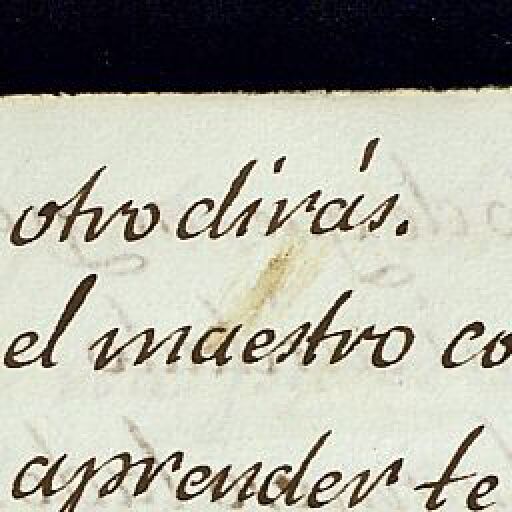 otro dirás.
el maestro co
aprender te